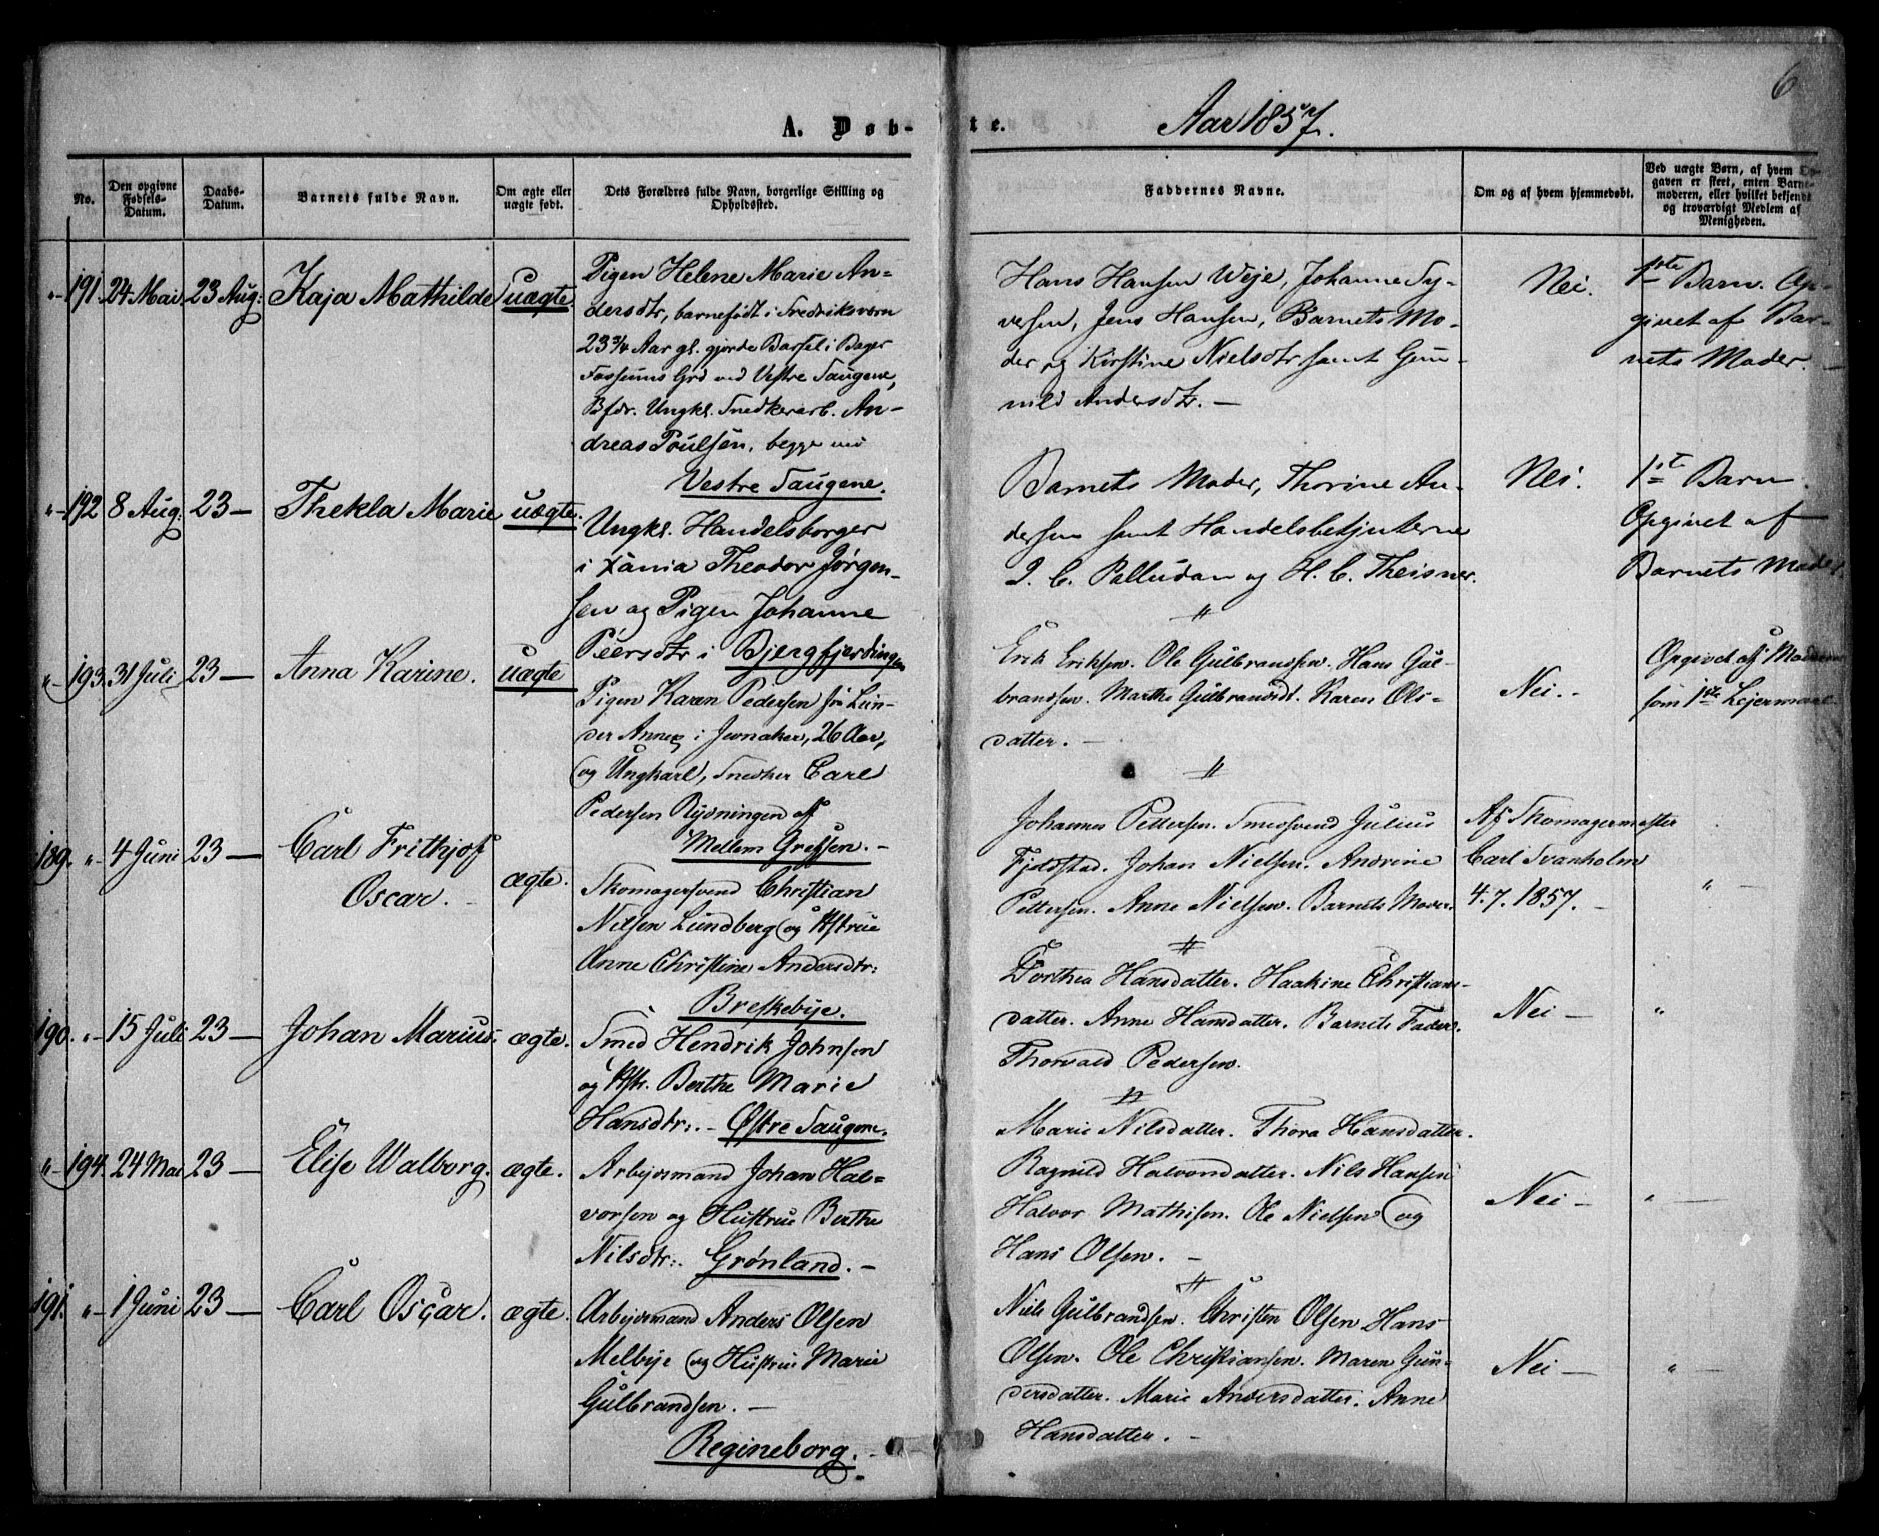 6
A. Døb-
te.
Aar 1857.
No.
Den opgivne
Fødsels-
Datum.
Daabs-
Datum.
Barnets fulde Navn.
Om ægte eller
uægte født.
Dets Forældres fulde Navn, borgerlige Stilling og
Opholdssted.
Faddernes Navne.
Om og af hvem hjemmedøbt.
Ved uægte Børn, af hvem Op-
gaven er skeet, enten Barne-
moderen, eller hvilket bekjendt
og troværdigt Medlem af
Menigheden.
"- 191. 24 Mai 23 Aug: Kaja Mathilde uægte
Pigen Helene Marie An-
dersdtr, barnefødt i Fredriksværn
23 3/4 Aar gl. gjorde Barsel i Bager
Fossums Grd ved Vestre Saugene,
Bfdr. Ungkl. Snedkerarb. An-
dreas Poulsen, begge ved
Vestre Saugene.
Hans Hansen Weje, Johanne Sy-
versen, Jens Hansen, Barnets Mo-
der og Kirstine Nielsdtr samt Gun-
nild Andersdtr. —
Nei.
1ste Barn. Op-
givet af Bar-
nets Moder. —
"- 192 8 Aug: 23 — Thekla Marie uægte.
Ungkl. Handelsborger
i Xania Theodor Jørgen-
sen og Pigen Johanne
Peersdtr i Bjergfjerdingen
Barnets Moder, Thorine An-
dersen samt Handelsbetjenterne
I. C. Palludan og H. C. Theisner.
"
Nei.
1st Barn.
Opgivet af
Barnets Moder.
"- 193. 31 Juli 23 — Anna Karine. uægte
Pigen Karen Pedersen frå Lun-
der Annex i Jevnaker, 26 Aar,
og Ungkarl, Snedker Carl
Pedersen Rydningen af
Mellem Grefsen. —
Erik Eriksen. Ole Gulbrandsen. Hans Gul-
brandsen. Marthe Gulbrandsdt. Karen Ols-
datter. —
"
Nei. -
Opgivet af Moderen
som 1ste Lejermaal.
189. "- 4 Juni 23 — Carl Frithjof
Oscar. - ægte.
Skomagersvend Christian
Nilsen Lundberg og Hstrue
Anne Christine Andersdtr:
Breskebye.
Johannes Pettersen. Smedsvend Julius
Fjeldstad. Johan Nielsen. Andrine
Pettersen. Anne Nielsen. Barnets Moder.
"
Af Skomagermester
Carl Svanholm
4.7.1857. -
" —
190. "- 15 Juli 23 — Johan Marius. ægte.
Smed Hendrik Johnsen
og Hstr. Berthe Marie
Hansdtr:. - Østre Saugene.
Dorthea Hansdatter. Haakine Christians-
datter. Anne Hansdatter. Barnets Fader.
Thorvald Pedersen.
"
Nei —
"
"- 194. 24 Mai 23 — Elise Walborg. ægte.
Arbejdsmand Johan Hal-
vorsen og Hustrue Berthe
Nilsdtr:. Grønland. —
Marie Nilsdatter. Thora Hansdatter.
Ragnild Halvorsdatter. Nils Hansen
Halvor Mathisen. Ole Nielsen og
Hans Olsen. —
"
Nei —
" —
191. "- 1 Juni 23 — Carl Oscar. ægte.
Arbejdsmand Anders Olsen
Melbye og Hustrue Marie
Gulbrandsen. —
Regineborg. -
Niels Gulbrandsen. Christen Olsen Hans
Olsen. Ole Christiansen. Maren Gun-
dersdatter. Marie Andersdatter. Anne
Hansdatter. —
Nei —
" —